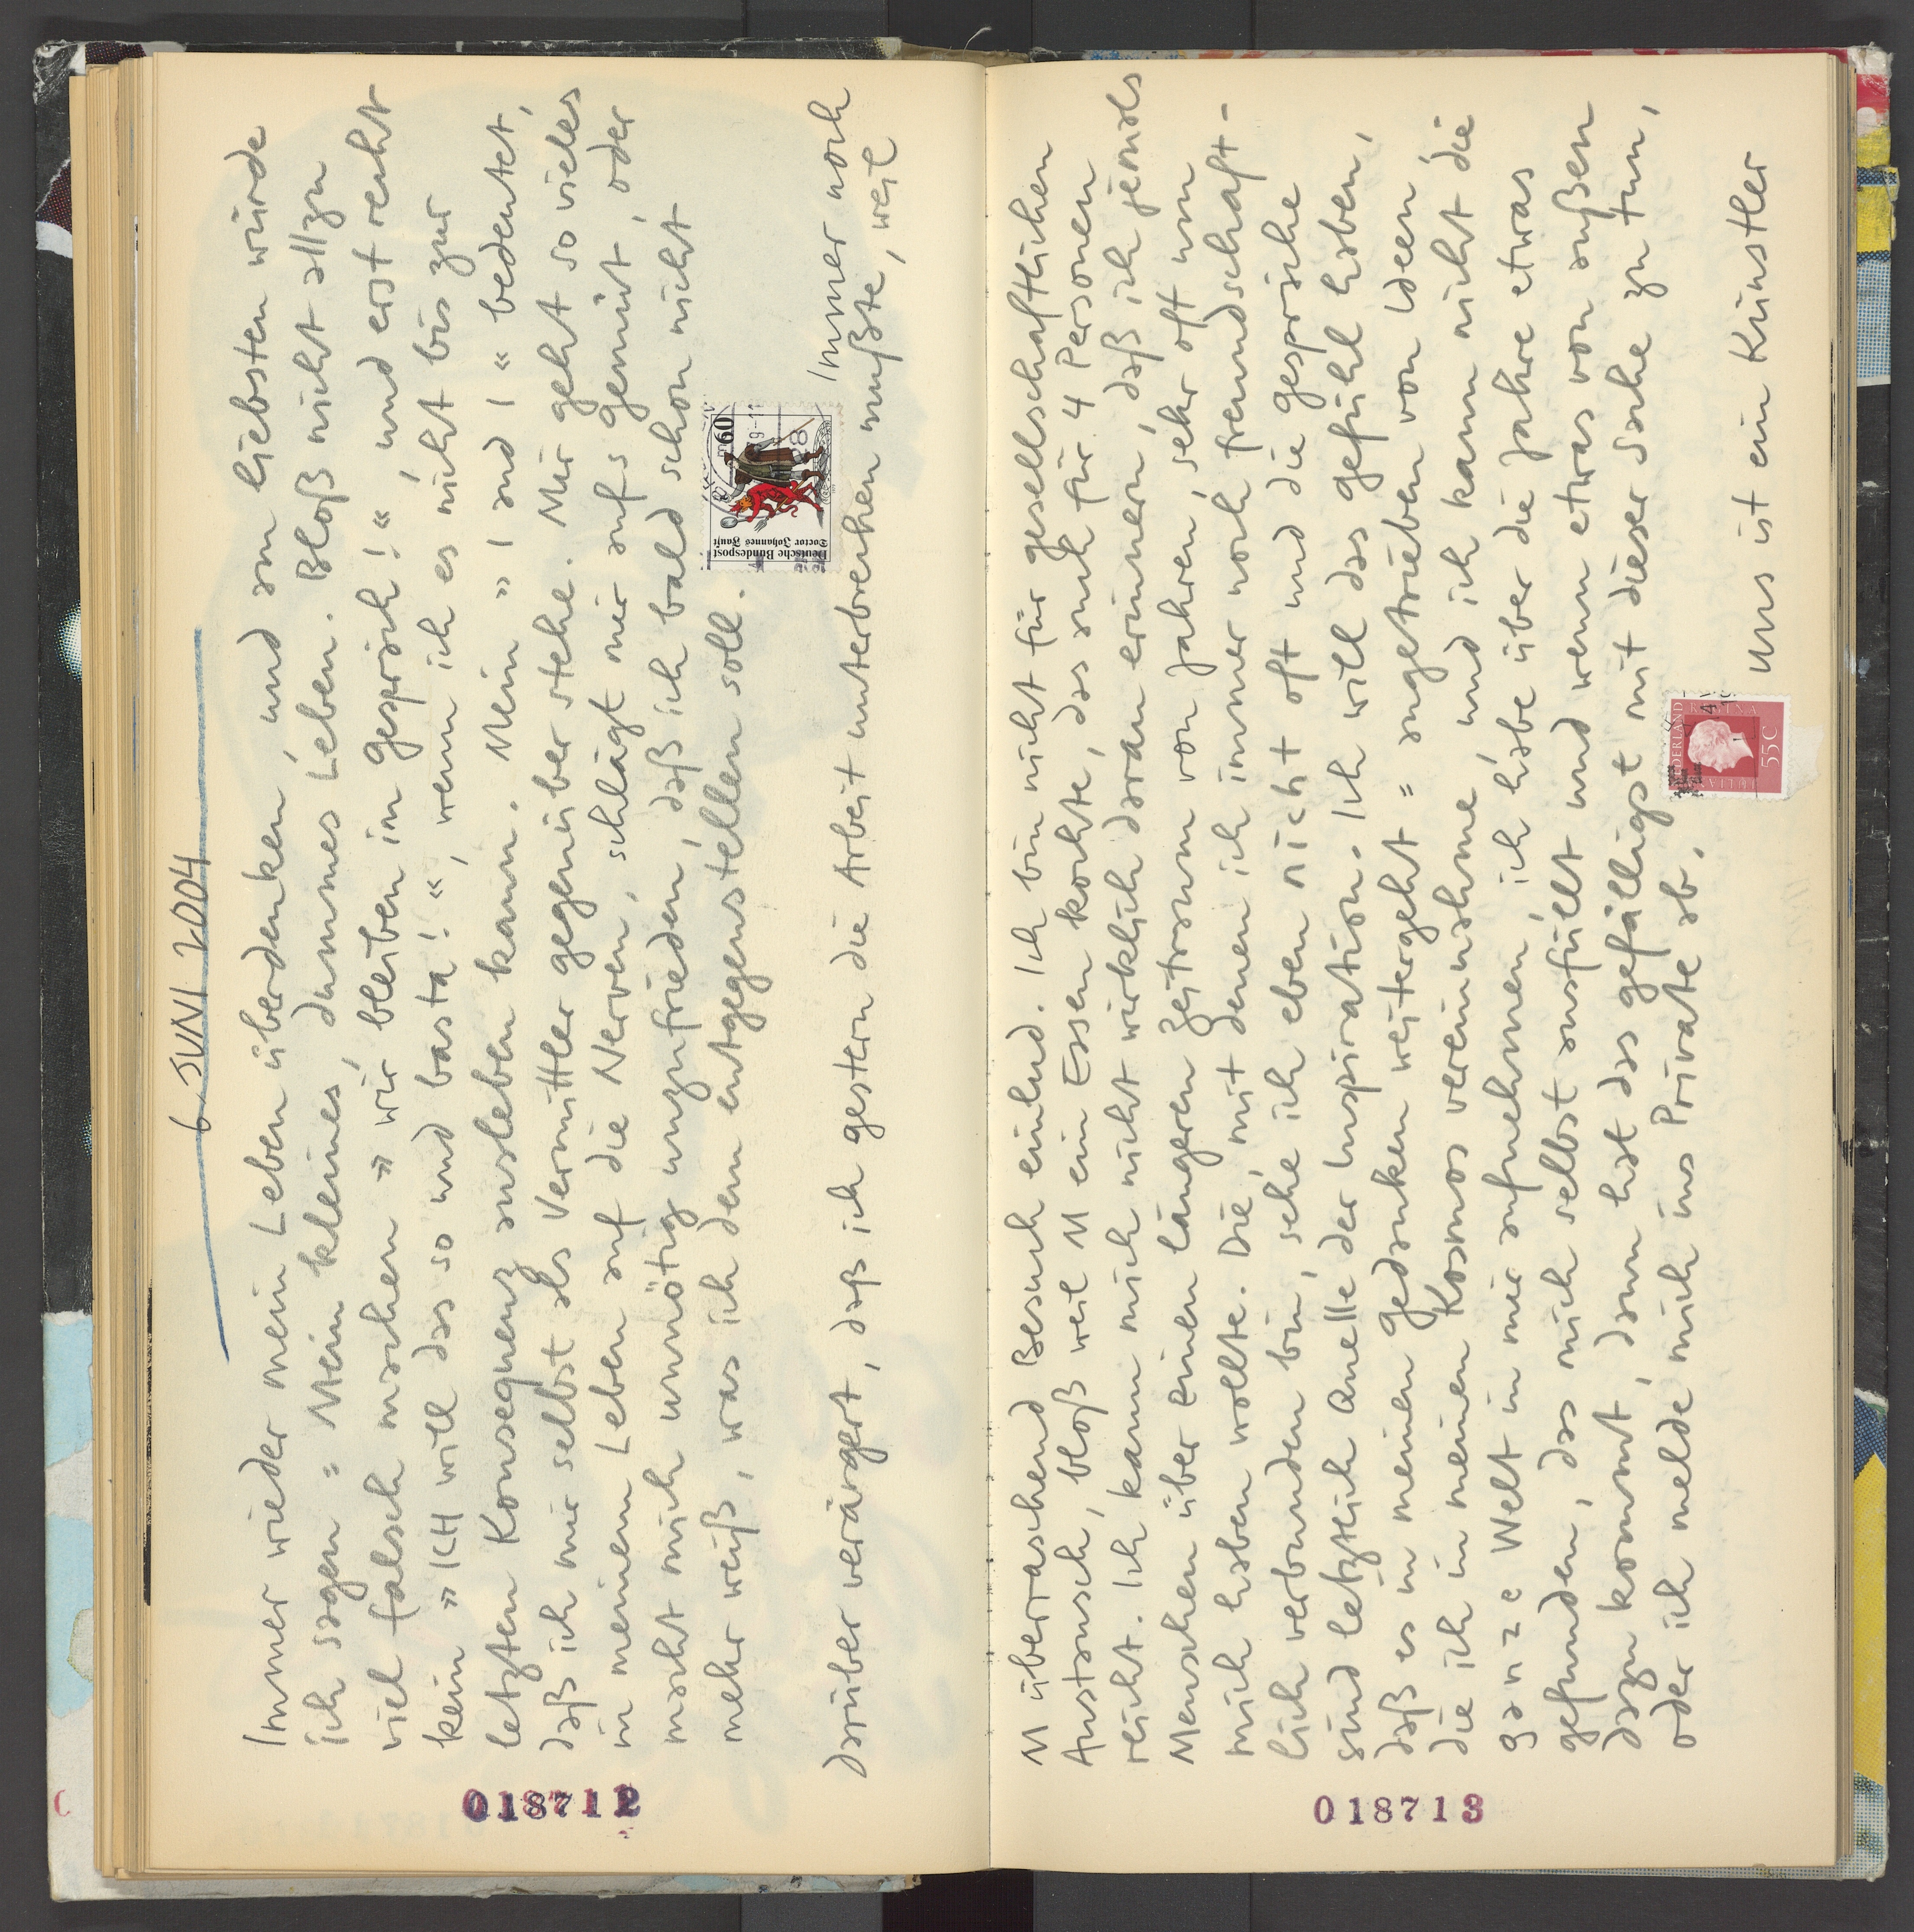 6. JUNI 2004
Immer wieder mein Leben überdenken, und am liebsten würde
ich sagen = Mein kleines, dummes Leben. Bloß nicht allzu
viel falsch machen » wir bleiben im Gespräch! «, und erst recht
kein » ICH will das so und basta! «, wenn ich es nicht bis zur
letzten Konsequenz ausleben kann. Mein » I and I « bedeutet,
daß ich mir selbst als Vermittler gegenüber stehe. Mir geht so vieles
in meinem Leben auf die Nerven, schlägt mir aufs Gemüt, oder
macht mich unnötig unzufrieden, daß ich bald schon nicht
mehr weiß, was ich dem entgegenstellen soll.
Deutsche Bundespost
Doctor Johannes Faust
60
Immer noch
darüber verärgert, daß ich gestern die Arbeit unterbrechen mußte, weil
018712
M überraschend Besuch einlud. Ich bin nicht für gesellschaftlichen
Austausch, bloß weil M ein Essen kochte, das auch für 4 Personen
reicht. Ich kann mich nicht wirklich daran erinnern, daß ich jemals
Menschen über einen längeren Zeitraum von Jahren, sehr oft um
mich haben wollte. Die, mit denen ich immer noch freundschaft-
lich verbunden bin, sehe ich eben nicht oft und die Gespräche
sind letztlich Quelle der Inspiration. Ich will das Gefühl haben,
daß es in meinen Gedanken weitergeht = angetrieben von Ideen,
die ich in meinen Kosmos vereinnahme, und ich kann nicht die
ganze Welt in mir aufnehmen, ich habe über die Jahre etwas
gefunden, das mich selbst ausfüllt und wenn etwas von außen
dazu kommt, dann hat das gefälligst mit dieser Sache zu tun,
oder ich melde mich ins Private ab.
NEDERLAND
55 C
Was ist ein Künstler
018713